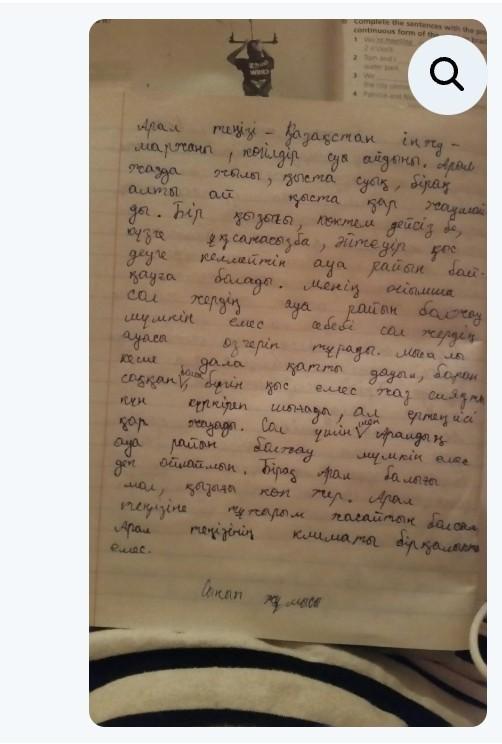 complete the sentences with the
continuous form of the
1 We're meeting
2 o'clock.
2 Tom and I
water park.
3 We
the city
4 Patricia and
Арал теңізі – Қазақстан інжу –
маржаны, көгілдір су айдыны. Арал
жазда жылы, қыста суық, бірақ
алты ай қыста қар жаумай
ды. Бір қызығы, көктем дейсіз бе,
күзге ұқсамасызба, әйтеуір қыс
деуге келмейтін ауа райын бай-
қауға болады. Менің ойымша
сол жердің ауа райын болжау
мүмкін емес себебі сол жердің
ауасы өзгеріп тұрады. Мысалы
кеше дала қатты дауыл, боран
соққан болса бүгін қыс емес жаз сияқты
күн күркіреп шығады, ал ертеңгісі
қар жауады. Сол үшін мен Аралдың
ауа райын болжау мүмкін емес
деп ойлаймын. Бірақ Арал балығы
мол, қызығы көп жер. Арал
теңізіне тұжырым жасайтын болсам
Арал теңізінің климаты бірқалыпты
емес.
Сынып жұмысы